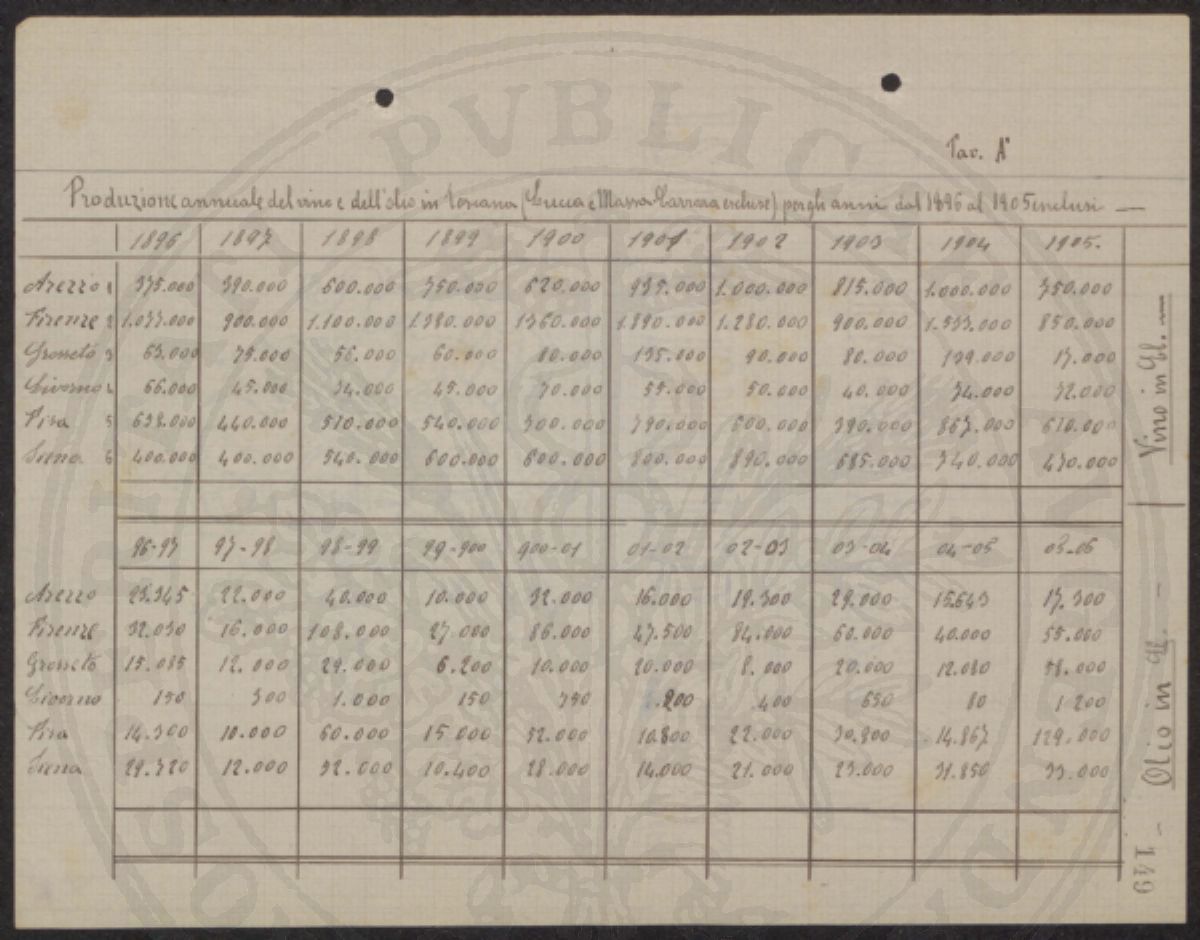 PVBLIC
Tav. A
Produzione annuale del vino e dell'olio in Toscana (Lucca e Massa-Carrara escluse) per gli anni dal 1896 al 1905 inclusi —
1896 1897 1898 1899 1900 1901 1902 1903 1904 1905.
Arezzo 1 375.000 390.000 600.000 350.000 620.000 935.000 1.000.000 815.000 1.000.000 750.000
Firenze 2 900.000 1.100.000 1.380.000 1360.000 1.890.000 1.280.000 900.000 850.000
Grosseto 3 63.000 75.000 56.000 60.000 80.000 135.000 90.000 80.000 17.000
Livorno 4 66.000 45.000 34.000 45.000 70.000 55.000 50.000 40.000 74.000 72.000
Pisa 5 638.000 440.000 510.000 540.000 300.000 790.000 600.000 390.000 867.000 610.000
Siena 6 400.000 400.000 540.000 600.000 600.000 800.000 890.000 685.000 740.000 430.000
Vino in Hl. —
96-97 97-98 98-99 99-900 900-01 01-02 02-03 03-04 04-05 05-06
Arezzo 23.345 22.000 40.000 10.000 32.000 16.000 19.300 29.000 15.643 17.300
Firenze 32.030 16.000 108.000 27.000 86.000 47.500 84.000 60.000 40.000 55.000
Grosseto 15.085 12.000 29.000 6.200 10.000 20.000 8.000 20.000 12.080 58.000
Livorno 150 300 1.000 150 350 .200 400 650 80 1.200
Pisa 14.300 10.000 60.000 15.000 52.000 10.800 22.000 30.800 14.867 129.000
Siena 29.320 12.000 32.000 10.400 28.000 14.000 21.000 23.000 31.850 33.000
Olio in Ql. —
149